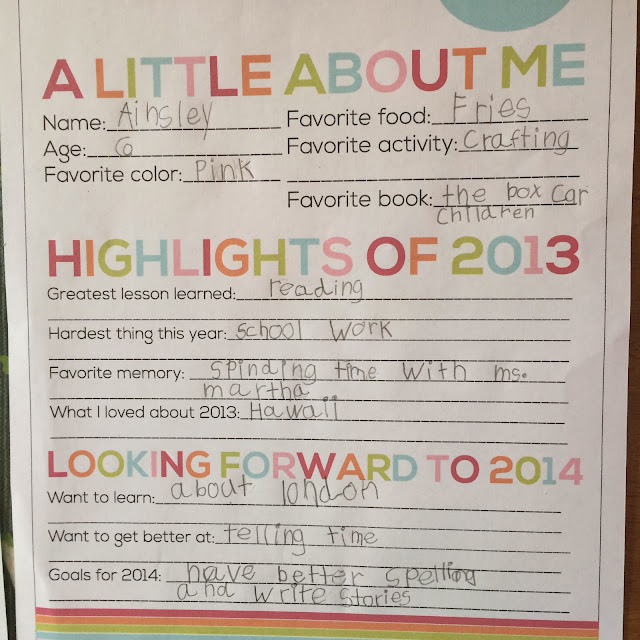 A LITTLE ABOUT ME
Name: Ainsley Favorite food: Fries
Age: 6 Favorite activity: Crafting
Favorite color: Pink
Favorite book: the box car
children
HIGHLIGHTS OF 2013
Greatest lesson learned: reading
Hardest thing this year: school work
Favorite memory: spinding time with ms.
martha
What I loved about 2013: Hawaii
LOOKING FORWARD TO 2014
Want to learn: about london
Want to get better at: telling time
Goals for 2014: have better spelling
and write stories